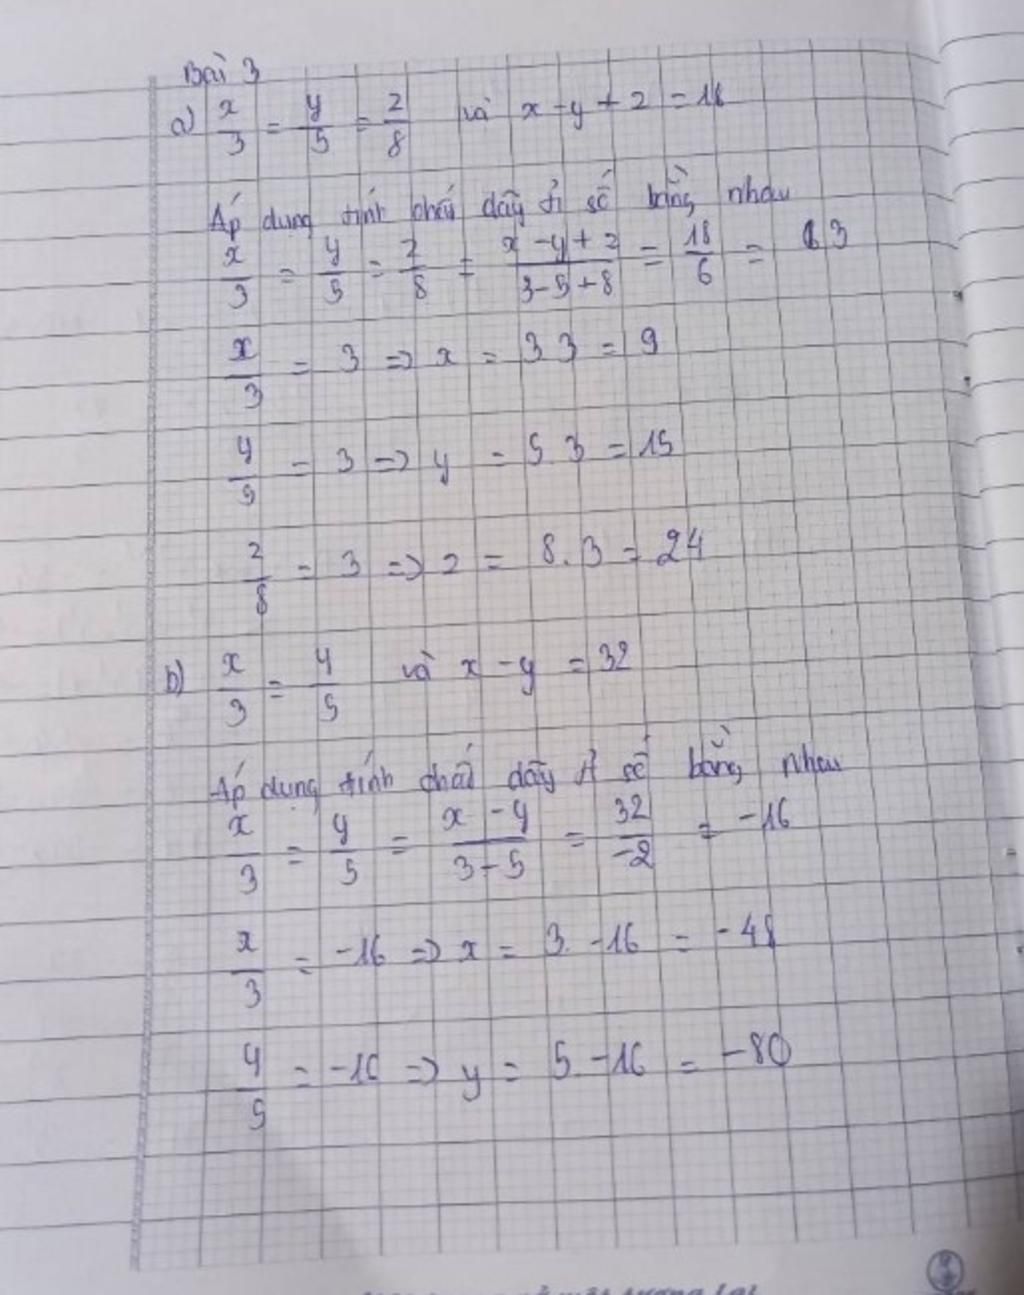 Bài 3
a) x/3 = y/5 = z/8 và x - y + z = 18
Áp dụng tính chất dãy tỉ số bằng nhau
x/3 = y/5 = z/8 = (x - y + z)/(3 - 5 + 8) = 18/6 = 3
x/3 = 3 => x = 3 3 = 9
y/5 = 3 => y = 5 . 3 = 15
z/8 = 3 => z = 8 . 3 = 24
b) x/3 = y/5 và x - y = 32
Áp dụng tính chất dãy tỉ số bằng nhau
x/3 = y/5 = (x - y)/(3 - 5) = 32/-2 = -16
x/3 = -16 => x = 3 . -16 = -48
y/5 = -16 => y = 5 . -16 = -80